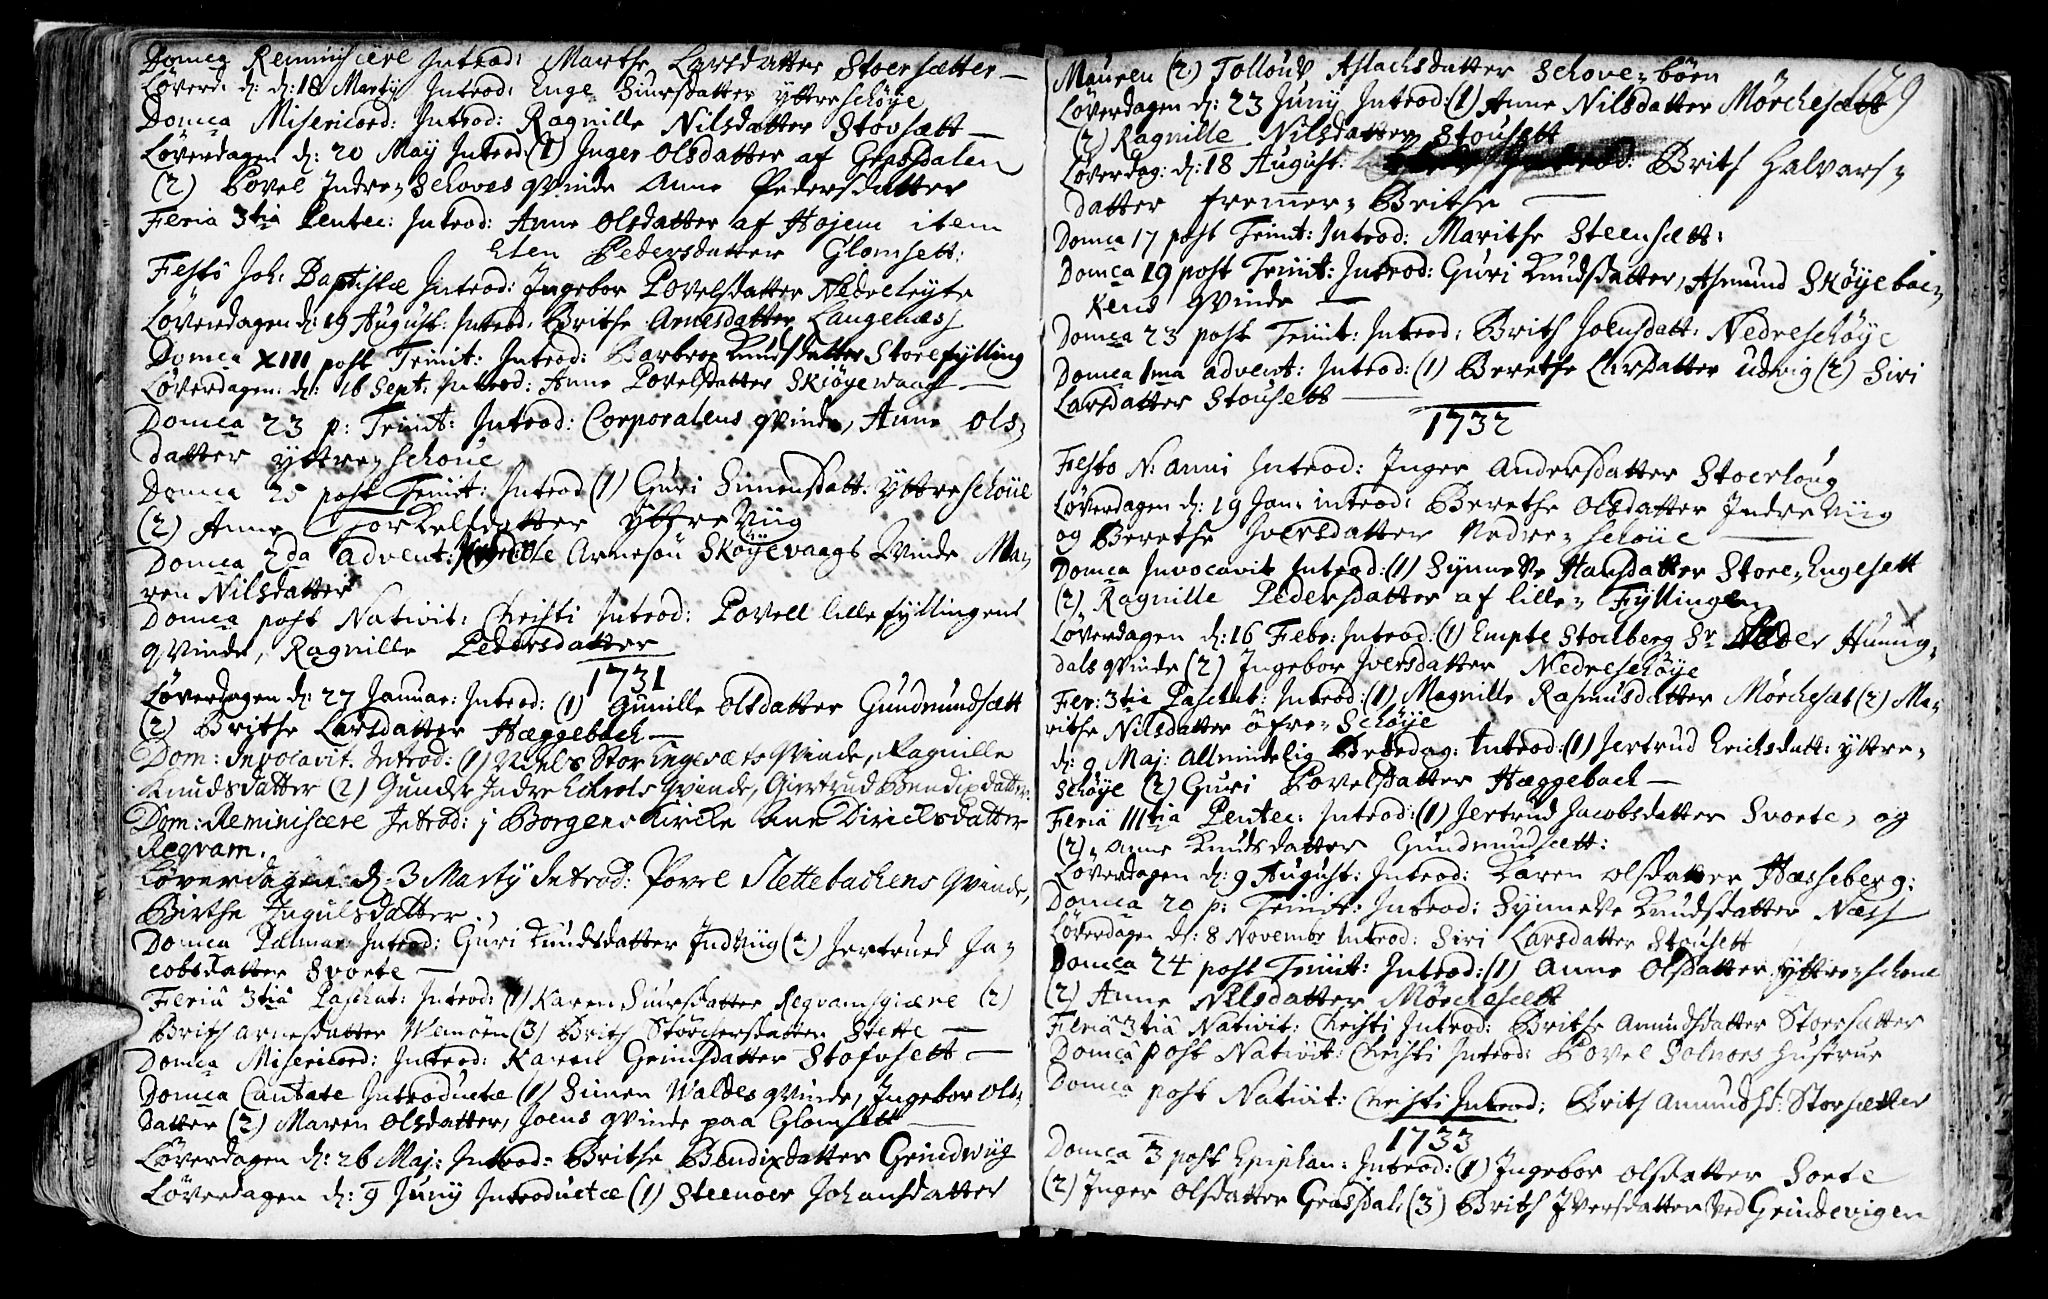 Domca Reminiscere Introd: Marthe Larsdatter Stoersætter —
Løverd: d: 18 Martij Introd: Enge Siursdatter yttreschøye
Domca Misericord: Introd: Ragnille Nilsdatter Stovsætt —
Løverdagen d: 20 Maÿ Introd: (1) Inger Olsdatter af Gersdalen
(2) Povel Indre-Schoves qvinde Anne Pedersdatter
Feria 3tiâ Pentec: Introd: Anne Olsdatter af Hojem item
Elen Pedersdatter Glomsett:
Festo Joh: Baptistæ Introd: Ingebor Povelsdatter Nedreleyte
Løverdagen d: 19 August: Introd: Brithe Arnesdatter Langenæss
Domca XIII post Trinit: Introd: Barbroe Knudsdatter Storefylling
Løverdagen: d: 16 Sept: Introd: Anne Povelsdatter Skiöyewaag —
Domca 23 p: Trinit: Introd: Corporalens qvinde, Anne Ols-
datter yttre-schoüe
Domca 25 post Trinit: Introd (1) Guri Simonsdatt: Yttreschöüe
(2) Anne Torkelsdatter Yttre Viig
Domca 2da Advent: Arnesön Sköÿevaags Qvinde Ma-
ren Nilsdatter
Domca post Nativit: Christi Introd: Povell lille fyllingens
qvinde, Ragnille Pedersdatter
1731
Løverdagen d: 27 Januar: Introd: (1) Gunille Olsdatter Gundmundsætt
(2) Brithe Larsdatter Hæggebach —
Dom: Invocavit. Introd: (1) Niels Stor Engesæts Qvinde, Ragnille
Knudsdatter (2) Gunder Indre Qvinde, Giertrud Bendixdatter:
Dom: Reminiscere Introd: j Borgens Kircke Ane Diricksdatter
Reqvam.
Løverdagen d. 3 Martij Introd: Povel Slettebachens Qvinde,
Birthe Ingulsdatter
Domca Palmar: Introd: Guri Knudsdatter Indviig (2) Jertrued Ja-
cobsdatter Svorte —
Feriâ 3tiâ Paschat: Introd: (1) Karen Siursdatter Reqvamsgiære (2)
Brith Arnesdatter Wemöen (3) Brith Störchersdatter Slette —
Domca Misericord: Introd: Karen Grimsdatter Stofvsett —
Domca Cantate Introductæ (1) Simen Waldes qvinde, Ingebor Ols-
datter (2) Maren Olsdatter, Joens qvinde paa Glomsett —
Løverdagen d: 26 Maj: Introd: Brithe Bendixdatter Grindwiig
Löverdagen d: 9 Junÿ Introductæ (1) Steenoer Johansdatter
Mauren (2) Tollouv Aslachsdatter Schove-böen
Løverdagen d: 23 Junÿ Introd: (1) Anne Nilsdatter Mörchesætt
(2) Ragnille Nilsdatter Stousett
Løverdag: d: 18 August: Introd: Brith Halvars-
datter fremer- Brithe —
Domca 17 post Trinit: Introd: Marithe Steensætt:
Domca 19 post Trinit: Introd: Guri Knudsdatter, Asmund Sköÿebac-
kens qvinde —
Domca 23 post Trinit: Introd: Brith Joensdatt: Nedreschöÿe
Domca 1ma advent: Introd: (1) Berethe Elirsdatter Udvig (2) Siri
Larsdatter Stousett —
1732
Festo N: Anni Introd: Inger Andersdatter Stoerloug
Løverdagen d: 19 Jan: introd: Berethe Olsdatter Indre Viig
og Berethe Iversdatter Nedre-schoüe —
Domca Invocavit Introd: (1) Synneve Hansdatter Store-Engesett
(2) Ragnille Pedersdatter af lille-Fyllingen
Løverdagen d: 16 Febr: Introd: (1) Empte Stocberg Sr Peder Hunnig-
dals qvinde (2) Ingebor Iversdatter Nedreschöÿe
Fer: 3tiâ Paschat: Introd: (1) Magnille Rasmusdatter Mörchesæt (2) Ma-
rithe Nilsdatter öfre-Schöÿe
d: 9 Maj: Allmindelig Bededag: Introd: (1) Jertrud Erichsdatt: yttre-
schöÿe (2) Guri Povelsdatter Hæggebach —
Feria IIItiâ Pentec: Introd: (1) Jertrud Jacobsdatter Svorte, og
(2) Anne Knudsdatter Gundmundsætt:
Løverdagen d: 9 August: Introd: Karen Olsdatter Hasseberg:
Domca 20 p: Trinit: Introd: Synneve Knudsdatter Næss
Løverdagen d: 8 Novembr Introd: Siri Larsdatter Stousett
Domca 24 post Trinit: Introd: (1) Anne Olsdatter yttre-schoue
(2) Anne Nilsdatter Mörchesett
Feriâ 3tiâ Nativit: Christi Introd: Brithe Amundsdatter Stoersætter
Domcâ post Nativit: Christi Introd: Povel Solnoes Hustrue
Domca post Nativit: Christi Introd: Brith Amundsd: Storsætter
1733
Domca 3 post Epiphan: Introd: (1) Ingebor Olsdatter Sorte
(2) Inger Olsdatter Grasdal, (3) Brith Iversdatter ved Grindevigen